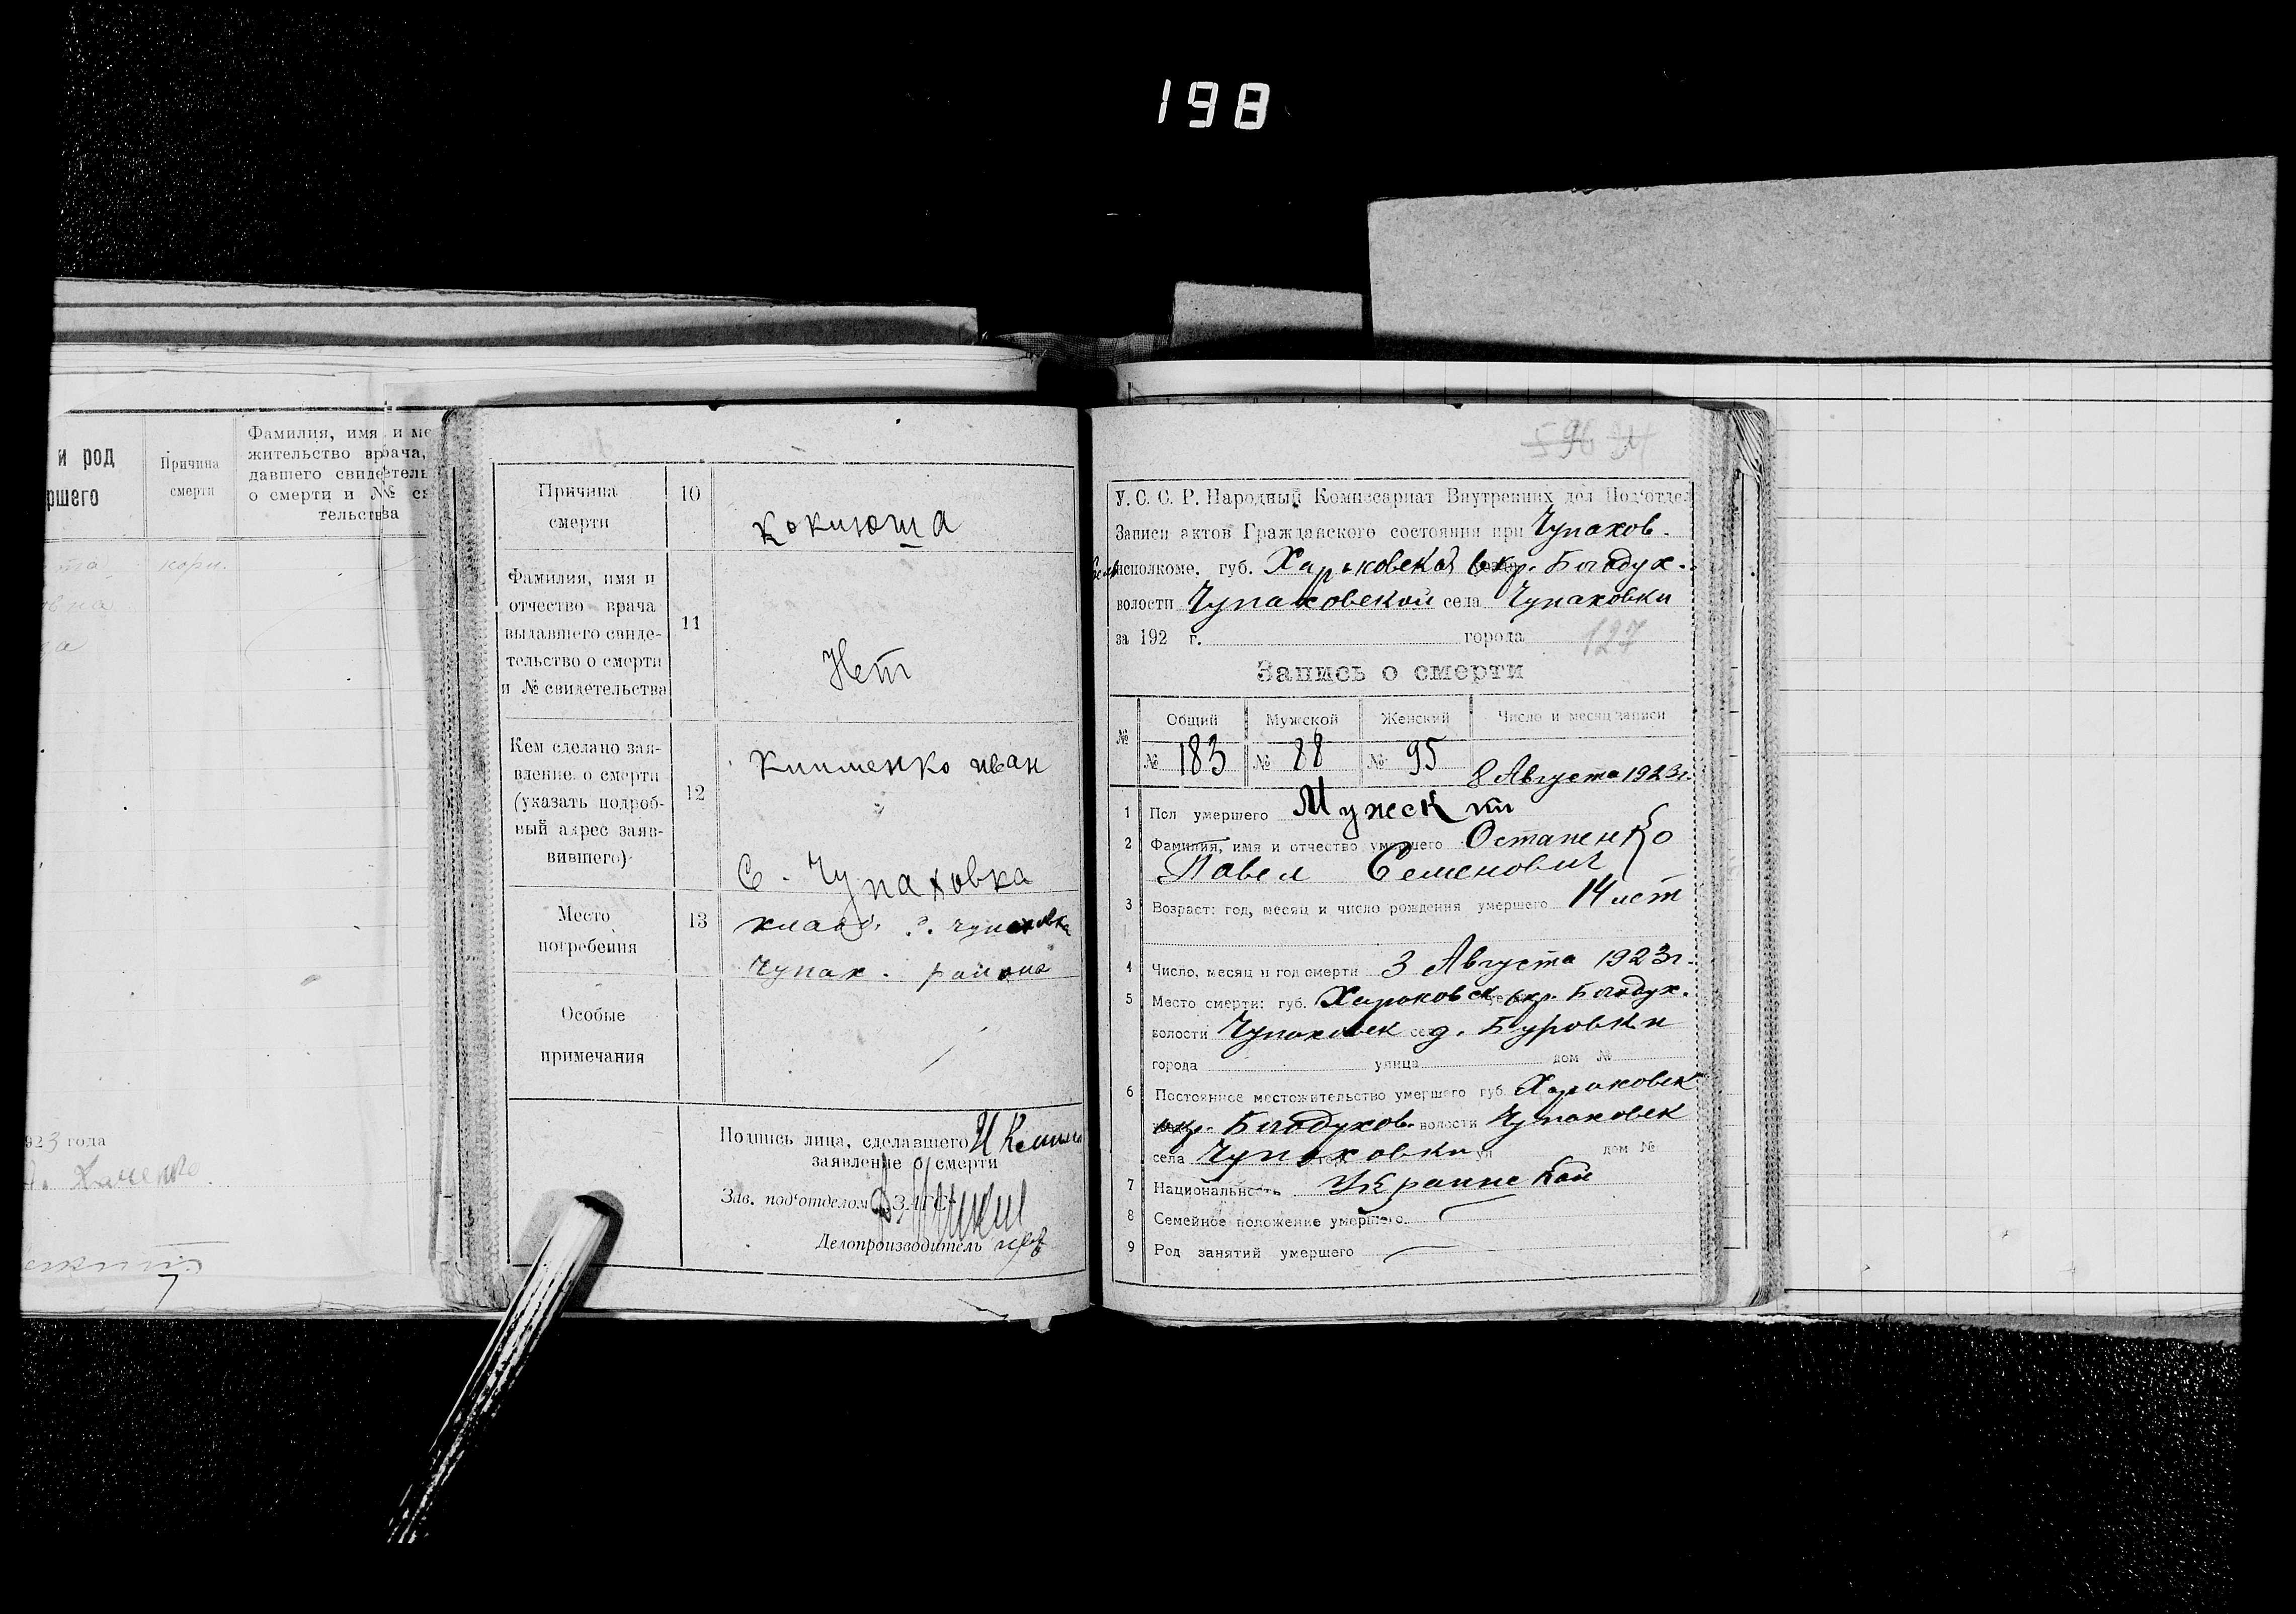 198
и род
ршего
Причина
смерти
Фамилия, имя и ме
жительство врача,
давшего свидетель
о смерти и № св
тельства
кори.
923 года
Причина
смерти
10
Коклюша
Фамилия, имя и
отчество врача
выдавшего свиде-
тельство о смерти
и № свидетельства
11
Нет
Кем сделано зая-
вление о смерти
(указать подроб-
ный адрес заяв-
вившего)
12
Клименко Иван
С. Чупаховка
Место
погребения
13
кладб. Чупаховка
Чупах. района
Особые
примечания
Подпись лица, сделавшего
заявление о смерти
Зав. под'отделом ЗАГС
Делопроизводитель
596
У. С. С. Р. Народный Комиссариат Внутренних дел Под'отдел
Записи актов Гражданского состояния при Чупахов.
исполкоме. губ. Харьковской окр. Богодух.
волости Чупаховской села Чупаховки
за 192 г. города
127
Запись о смерти
№ Общий Мужской Женский Число и месяц записи
№ 183 № 88 № 95 8 Августа 1923 г.
1 Пол умершего Мужск
2 Фамилия, имя и отчество умершего Остапенко
Павел Семенович
3 Возраст: год, месяц и число рождения умершего 14 лет
4 Число, месяц и год смерти 3 Августа 1923 г.
5 Место смерти: губ. Харьковск окр. Богодух.
волости Чупаховск д. Буровки
города улица дом №
6 Постоянное местожительство умершего губ. Харьковск
окр. Богодухов. волости Чупаховск
села Чупаховки ул дом №
7 Национальность Украинской
8 Семейное положение умершего
9 Род занятий умершего